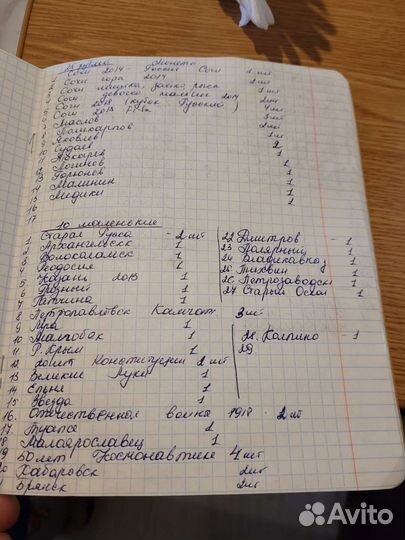 25 рублей монета
1 Сочи 2014 - Россия Сочи 1 шт
2 Сочи гора 2014 1 шт
Сочи мишка, зайка, рысь 1 шт
Сочи 2014 2 шт
Сочи 2018 (кубок) 4 шт
Сочи 2018 3 шт
Маслов 2 шт
Поликарпов 1 шт
Яковлев 2
10 Судаев 1
11 Токарев 1
12 Логинов 1
13 Горюнов 1
14 Малинин 1
15 Медики 1
16
17
10 маленькие
1. Старая Русса - 2 шт
2 Архангельск 1
3 Волоколамск 1
4 Феодосия 1
5 Казань 2013 1
6 Грозный 1
7 Гатчина 1
8 Петропавловск Камчат 3 шт
9 Луга 1
10 Малгобек 1
11 Р. Крым 1
12 20 лет Конституции 2 шт
13 Великие Луки 1
14 Ельня 1
15 Звезда 1
16. Отечественная война 1918 - 2 шт
17 Туапсе 1
18 Малоярославец 1
19 50 лет Космонавтике 4 шт
20 Хабаровск 2 шт
Брянск 2 шт
22 Дмитров - 1
23 Полярный - 1
24 Владикавказ - 1
25 Тихвин - 1
26 Петрозаводск - 1
27 Старый Оскол - 1
28. Колпино - 1
29
Avito